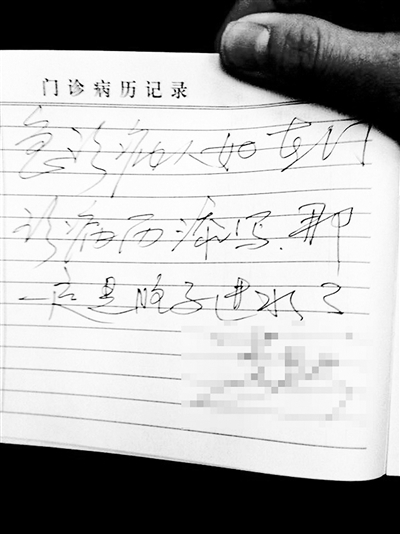 门诊病历记录
急诊病人如有门
诊病历 写,那
一定是脑子进水了